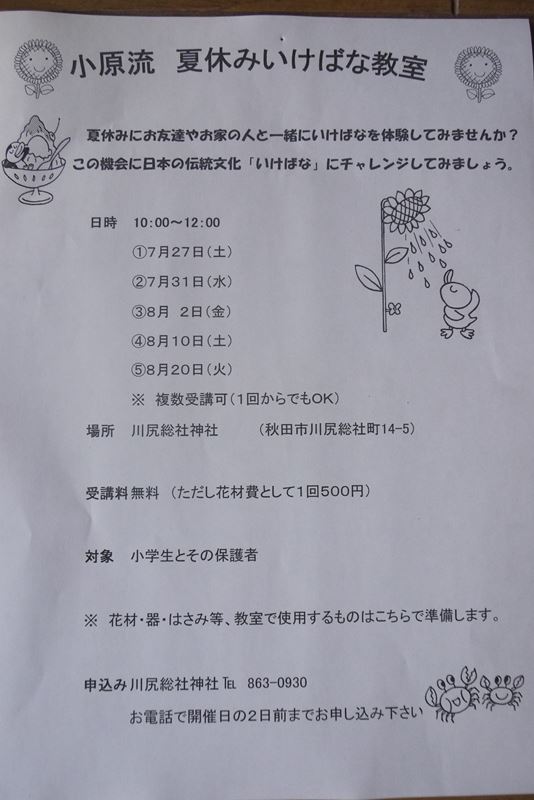 小原流　夏休みいけばな教室
夏休みにお友達やお家の人と一緒にいけばなを体験してみませんか？
この機会に日本の伝統文化「いけばな」にチャレンジしてみましょう。
日時　10：00～12：00
①７月２７日（土）
②７月３１日（水）
③８月　２日（金）
④８月１０日（土）
⑤８月２０日（火）
※　複数受講可（１回からでもＯＫ）
場所　川尻総社神社　　（秋田市川尻総社町14-5）
受講料 無料　（ただし花材費として１回５００円）
対象　小学生とその保護者
※　花材・器・はさみ等、教室で使用するものはこちらで準備します。
申込み 川尻総社神社 ℡　863-0930
お電話で開催日の２日前までお申し込み下さい